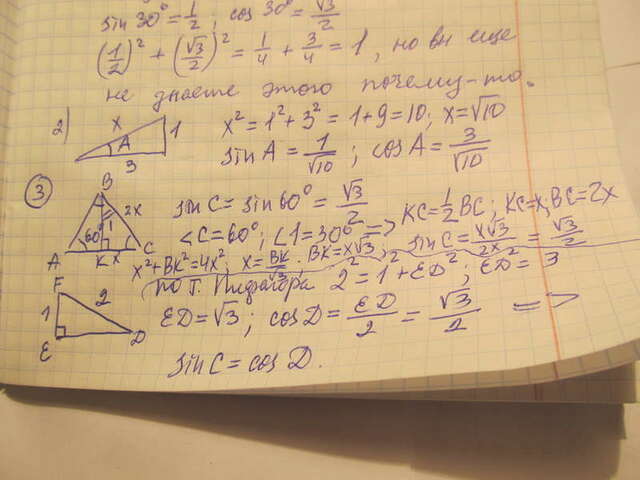 sin 30° = 1/2 ; cos 30° = √3/2
(1/2)² + (√3/2)² = 1/4 + 3/4 = 1, но вы еще
не знаете этого почему-то.
2) x 1 A 3 x² = 1² + 3² = 1 + 9 = 10; x = √10
sin A = 1/√10 ; cos A = 3/√10
3 B 2x 1 60° A K x C sin C = sin 60° = √3/2
<C = 60°; <1 = 30° => KC = 1/2 BC; KC = x; BC = 2x
x² + BK² = 4x²; x = BK/√3 . BK = x√3 ; sin C = x√3/2x = √3/2
F 1 2 E D по т. Пифагора 2² = 1² + ED²; ED² = 3
ED = √3; cos D = ED/2 = √3/2 =>
sin C = cos D.